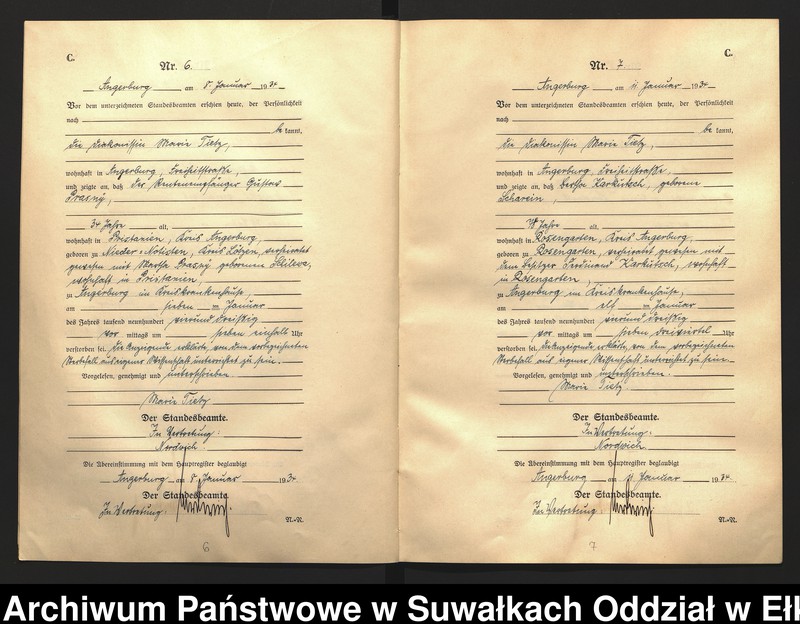 C.
Nr. 6.
Angerburg am 8. Januar 1934
Vor dem unterzeichneten Standesbeamten erschien heute, der Persönlichkeit
nach
be kannt,
die Diakonissin Marie Tietz,
wohnhaft in Angerburg, Freiheitstraße,
und zeigte an, daß der Rentenempfänger Gustav
34 Jahre alt,
wohnhaft in Pristanien, Kreis Angerburg,
geboren zu Kreis Lötzen, verheiratet
gewesen mit geborenen
wohnhaft in Pristanien,
zu Angerburg im Kreiskrankenhause,
am sieben ten Januar
des Jahres tausend neunhundert vierund dreißig
vor mittags um sieben einhalb Uhr
verstorben sei. Die Anzeigende erklärte, von dem vorbezeichneten
Sterbefall aus eigener Wissenschaft unterrichtet zu sein.
Vorgelesen, genehmigt und unterschrieben.
Marie Tietz
Der Standesbeamte.
In Vertretung:
Die Übereinstimmung mit dem Hauptregister beglaubigt
Angerburg am 8. Januar 1934
Der Standesbeamte
In Vertretung:
N.-N.
6
C.
Nr. 7.
Angerburg am 11 Januar 1934
Vor dem unterzeichneten Standesbeamten erschien heute, der Persönlichkeit
nach
be kannt,
die Diakonissin Marie Tietz,
wohnhaft in Angerburg, Freiheitstraße,
und zeigte an, daß Bertha Karkutsch, geborene
78 Jahre alt,
wohnhaft in Rosengarten, Kreis Angerburg,
geboren zu Rosengarten, verheiratet gewesen mit
dem Besitzer Ferdinand Karkutsch, wohnhaft
in Rosengarten,
zu Angerburg im Kreiskrankenhause,
am elf ten Januar
des Jahres tausend neunhundert vierund dreißig
vor mittags um sieben dreiviertel Uhr
verstorben sei. Die Anzeigende erklärte, von dem vorbezeichneten
Sterbefall aus eigener Wissenschaft unterrichtet zu sein.
Vorgelesen, genehmigt und unterschrieben.
Marie Tietz
Der Standesbeamte.
In Vertretung:
Die Übereinstimmung mit dem Hauptregister beglaubigt
Angerburg am 11 Januar 1934.
Der Standesbeamte
In Vertretung:
N.-N.
7
Archiwum Państwowe w Suwałkach Oddział w Ełk